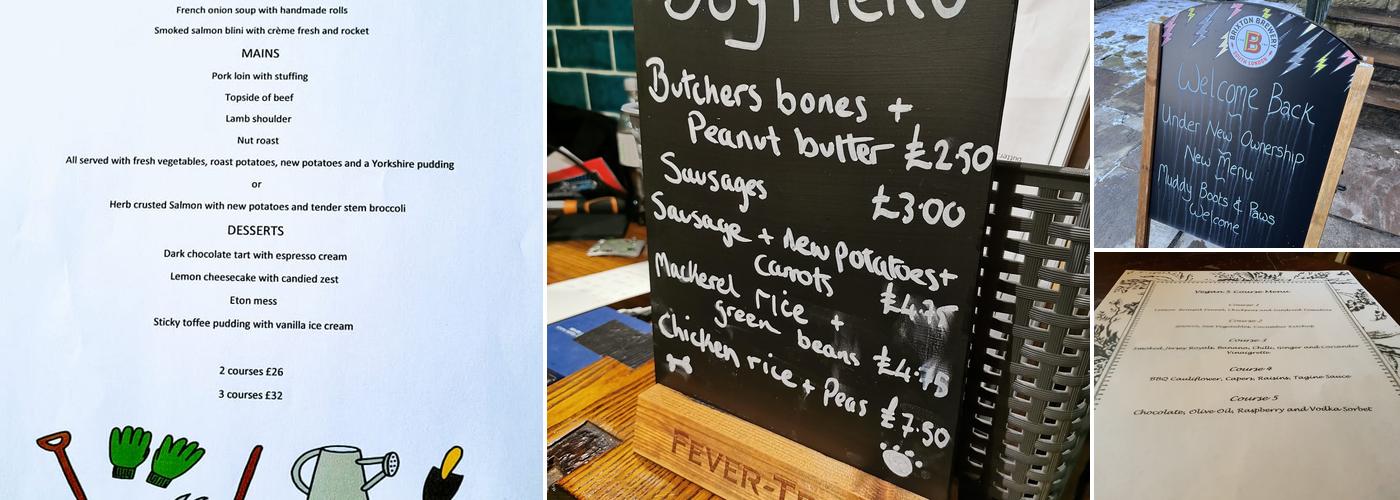 French onion soup with handmade rolls
Smoked salmon blini with crème fresh and rocket
MAINS
Pork loin with stuffing
Topside of beef
Lamb shoulder
Nut roast
All served with fresh vegetables, roast potatoes, new potatoes and a Yorkshire pudding
or
Herb crusted Salmon with new potatoes and tender stem broccoli
DESSERTS
Dark chocolate tart with espresso cream
Lemon cheesecake with candied zest
Eton mess
Sticky toffee pudding with vanilla ice cream
2 courses £26
3 courses £32
Dog Menu
Butchers bones +
Peanut butter £2.50
Sausages £3.00
Sausage + new potatoes +
Carrots £4.75
Mackerel rice +
green beans £4.75
Chicken rice + Peas £7.50
FEVER-T
BRIXTON BREWERY
B
SOUTH LONDON
Welcome Back
Under New Ownership
New Menu
Muddy Boots & Paws
Welcome
Vegan 5 Course Menu
Course 1
Course 2
Course 3
Smoked Jersey Royals, Banana, Chilli, Ginger and Coriander
Vinaigrette
Course 4
BBQ Cauliflower, Capers, Raisins, Tagine Sauce
Course 5
Chocolate, Olive Oil, Raspberry and Vodka Sorbet